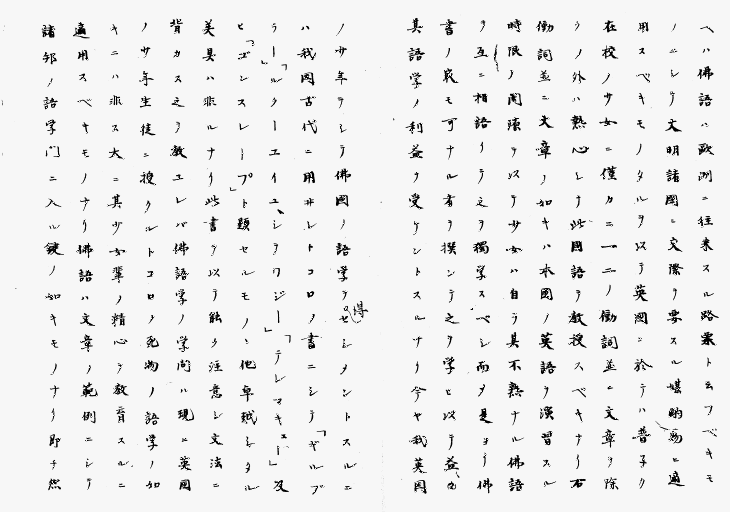 ヘハ佛語ハ歐洲ニ往来スル路票ト云フベキモ
ノニシテ文明諸國ニ交際ヲ要スル 適
用スベキモノタルヲ以テ英國ニ於テハ普子ク
在校ノ少女ニ僅カニ一二ノ働詞並ニ文章ヲ除
クノ外ハ熱心シテ此國語ヲ教授スベキナリ右
働詞並ニ文章ノ如キハ本國ノ英語ヲ演習スル
時限ノ間隙ヲ以テ少女ハ自ラ其不熟ナル佛語
ヲ互ニ相語リテ之ヲ獨学スベシ而ヲ是ヨリ佛
書ノ最モ可ナル者ヲ撰ンデ之ヲ学ヒ以テ益々
其語学ノ利益ヲ受ケントスルナリ今ヤ我英国
ノ少年ヲシテ佛國ノ語学ヲ得セシメントスルニ
ハ我國古代ニ用ヰシトコロノ書ニシテ「ギルブ
ラール」「ルクーエイユ、シテワジー」「テレマキュー」及
ヒ「ゴンスレーブ」ト題セルモノハ他卓越シタル
美具ハ非ルナリ此書ヲ以テ能ク注意シ文法ニ
背カス之ヲ教エレバ佛語学ノ学問ハ現ニ英國
ノ少年生徒ニ授クルトコロノ死物ノ語学ノ如
キニハ非ス大ニ其少女輩ノ精心ヲ教育スルニ
適用スベキモノナリ佛語ハ文章ノ範例ニシテ
諸邦ノ語学門ニ入ル鍵ノ如キモノナリ即チ然